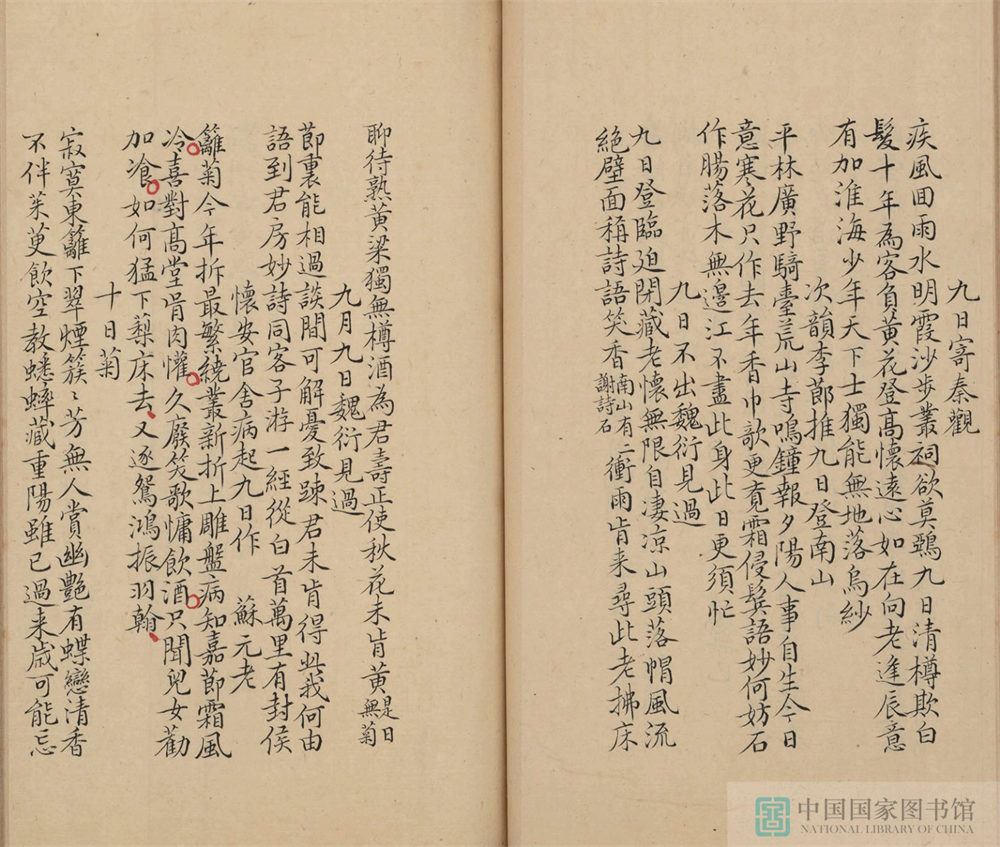 九日寄秦觀
疾風回雨水明霞沙步叢祠欲莫鵶九日清樽欺白
髮十年為客負黃花登高懷遠心如在向老逢辰意
有加淮海少年天下士獨能無地落烏紗
次韻李節推九日登南山
平林廣野騎臺荒山寺鳴鐘報夕陽人事自生今日
意寒花只作去年香巾歌更竟霜侵鬂語妙何妨石
作腸落木無邊江不盡此身此日更須忙
九日不出魏衍見過
九日登臨迫閉藏老懷無限自凄凉山頭落帽風流
絕壁面稱詩語笑香南山有謝詩石二衝雨肯来尋此老拂床
聊待熟黃梁獨無樽酒為君壽正使秋花未肯黃是日無菊
九月九日魏衍見過
節裏能相過談間可解憂致踈君未肯得此我何由
語到君房妙詩同客子游一經從白首萬里有封侯
懷安官舍病起九日作 蘇元老
籬菊今年折最繁繞叢新折上雕盤病知嘉節霜風
冷喜對高堂骨肉懽久廢笑歌慵飲酒只聞兒女勸
加飡如何猛下藜床去又逐鴛鴻振羽翰
十日菊
寂寞東籬下翠煙簇〻芳無人賞幽艷有蝶戀清香
不伴茱萸飲空教蟋蟀藏重陽雖已過来歲可能忘
中国国家图书馆
NATIONAL LIBRARY OF CHINA